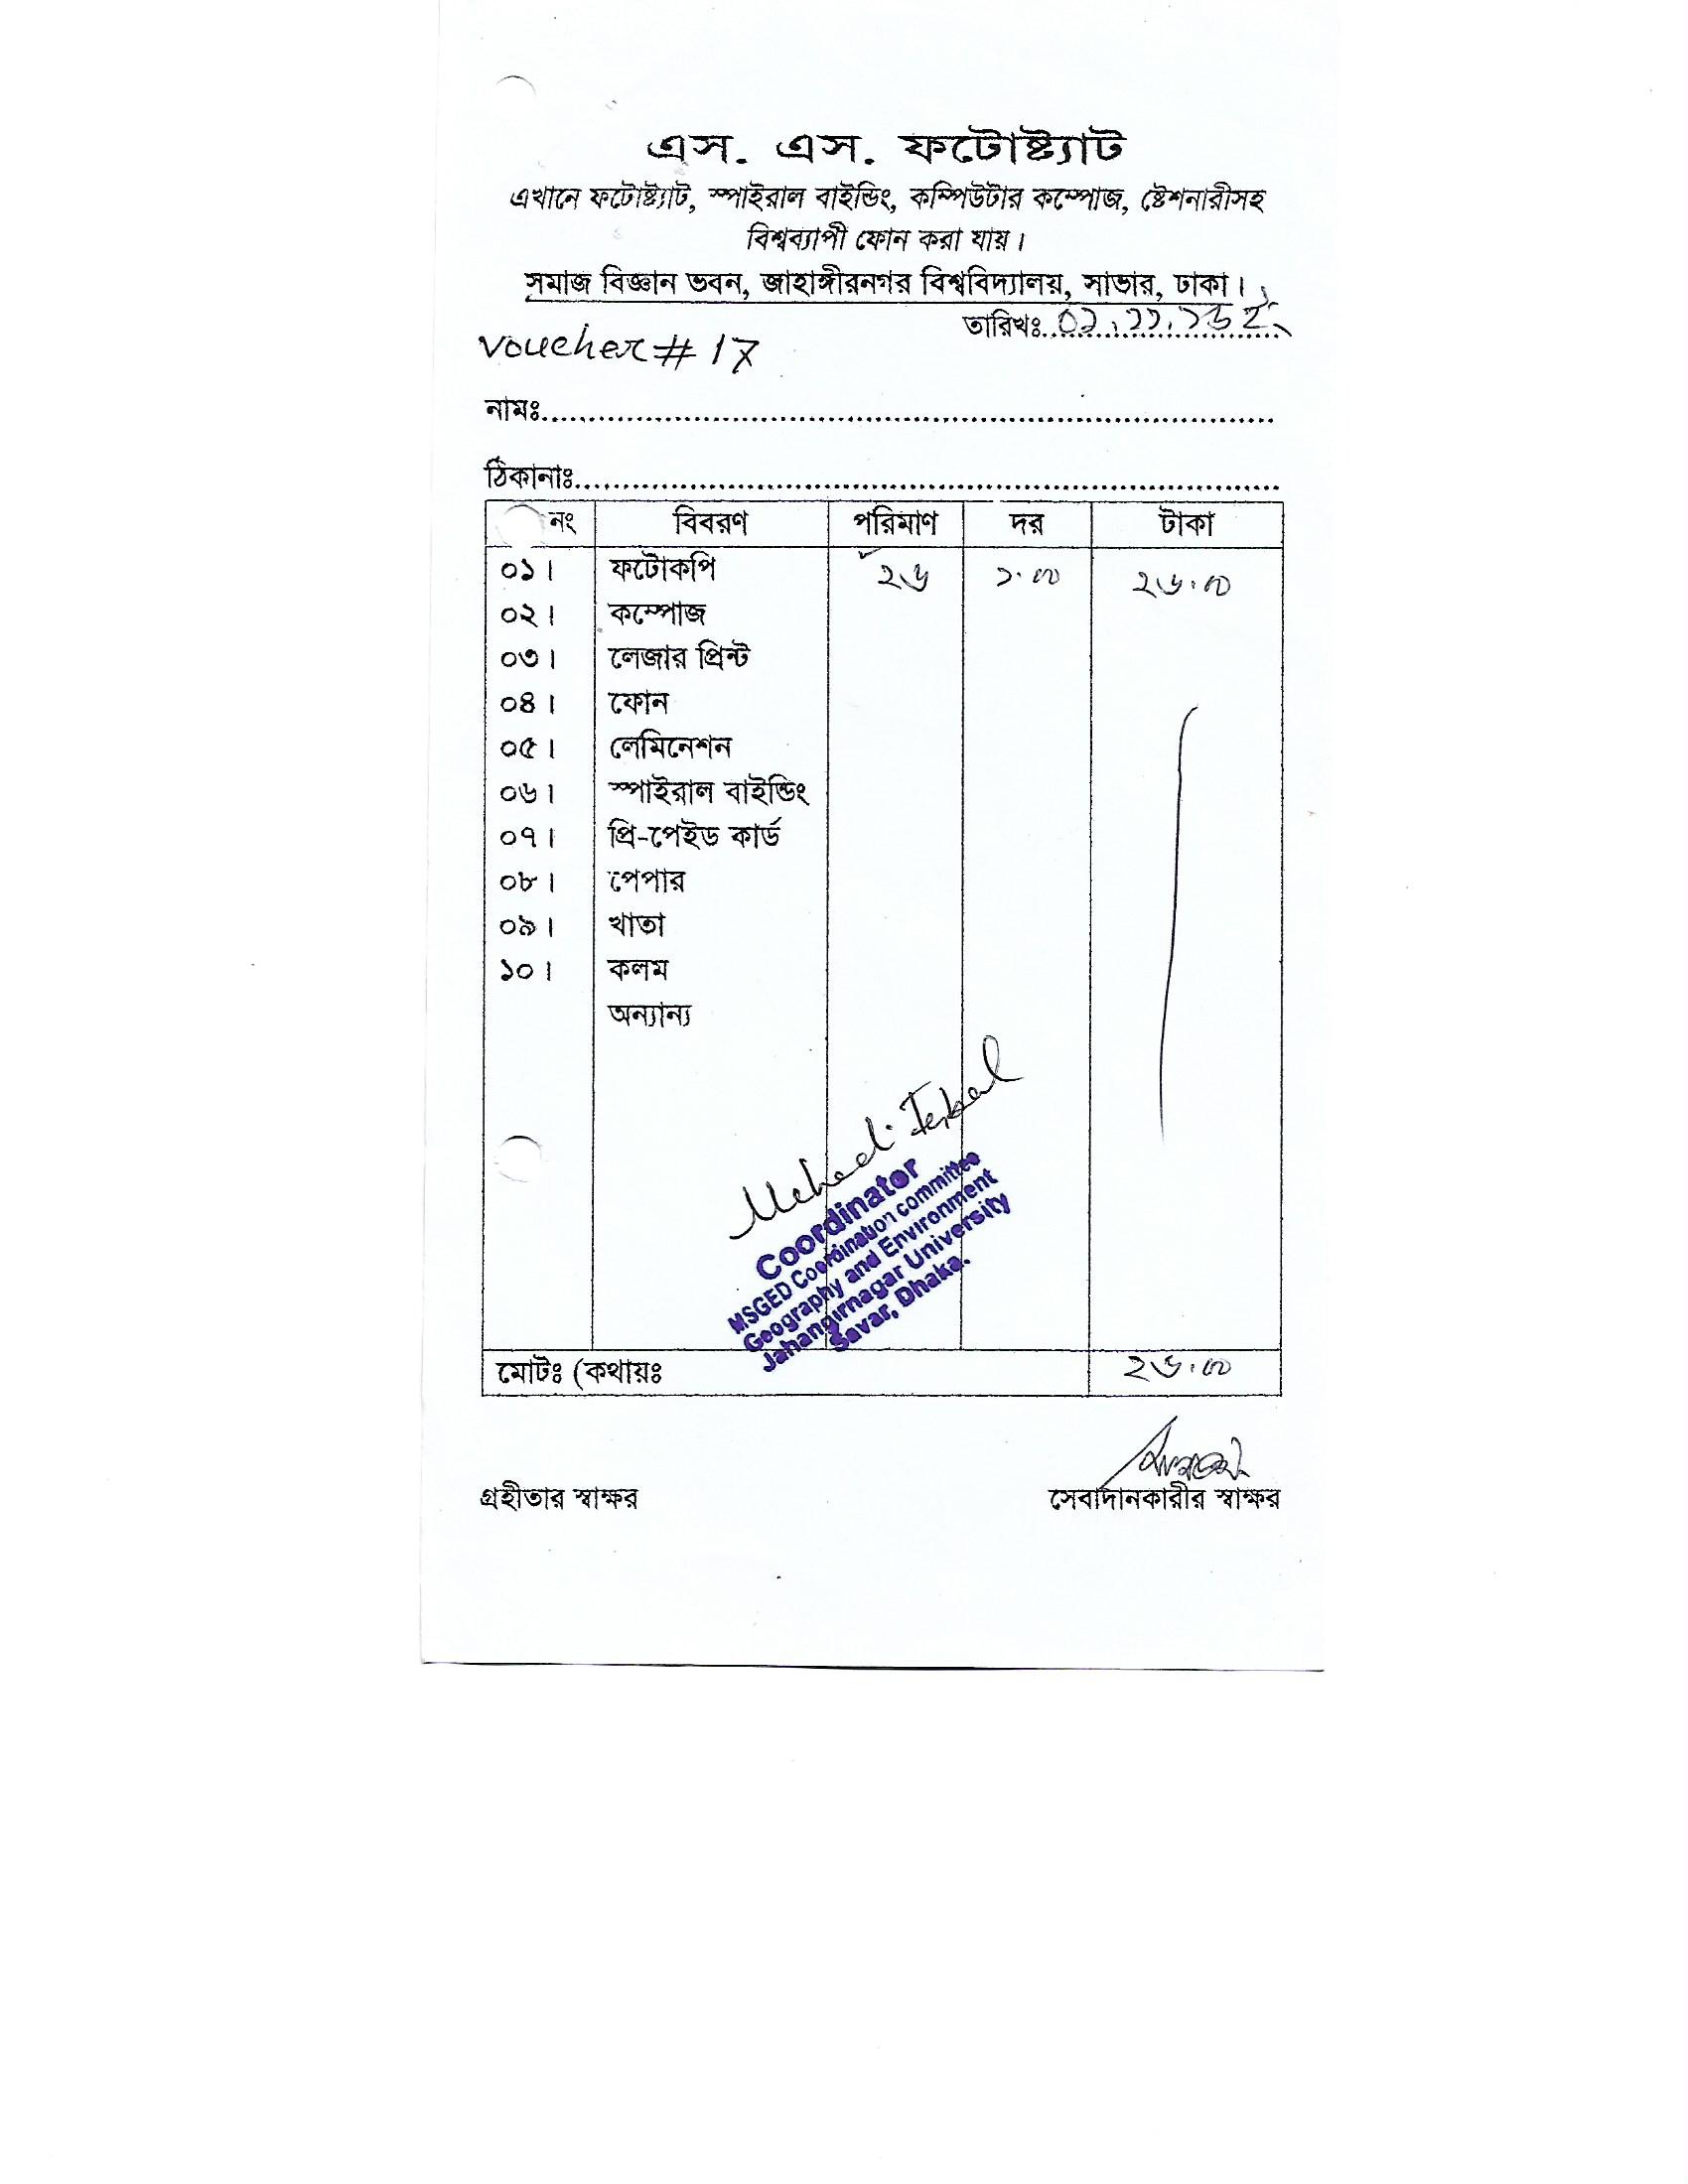 এস. এস. ফটোষ্ট্যাট
এখানে ফটোষ্ট্যাট, স্পাইরাল বাইন্ডিং, কম্পিউটার কম্পোজ, ষ্টেশনারীসহ
বিশ্বব্যাপী ফোন করা যায়।
সমাজ বিজ্ঞান ভবন, জাহাঙ্গীরনগর বিশ্ববিদ্যালয়, সাভার, ঢাকা।
তারিখঃ
Voucher # 17
নামঃ
ঠিকানাঃ
নং বিবরণ পরিমাণ দর টাকা
০১। ফটোকপি ২৬ ১.০০ ২৬.০০
০২। কম্পোজ
০৩। লেজার প্রিন্ট
০৪। ফোন
০৫। লেমিনেশন
০৬। স্পাইরাল বাইন্ডিং
০৭। প্রি-পেইড কার্ড
০৮। পেপার
০৯। খাতা
১০। কলম
অন্যান্য
Mehedi Iqbal
Coordinator
MSGED Coordination committee
Geography and Environment
Jahangirnagar University
Savar, Dhaka.
মোটঃ (কথায়ঃ ২৬.০০
গ্রহীতার স্বাক্ষর সেবাদানকারীর স্বাক্ষর